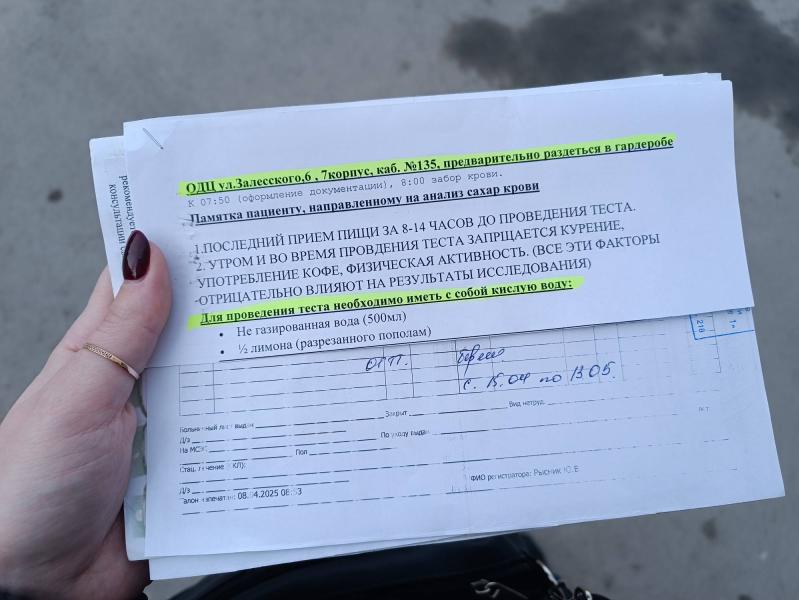 рекомендует
консультации
ОДЦ ул.Залесского,6 , 7корпус, каб. №135, предварительно раздеться в гардеробе
К 07:50 (оформление документации), 8:00 забор крови.
Памятка пациенту, направленному на анализ сахар крови
1.ПОСЛЕДНИЙ ПРИЕМ ПИЩИ ЗА 8-14 ЧАСОВ ДО ПРОВЕДЕНИЯ ТЕСТА.
2. УТРОМ И ВО ВРЕМЯ ПРОВДЕНИЯ ТЕСТА ЗАПРЩАЕТСЯ КУРЕНИЕ,
УПОТРЕБЛЕНИЕ КОФЕ, ФИЗИЧЕСКАЯ АКТИВНОСТЬ. (ВСЕ ЭТИ ФАКТОРЫ
ОТРИЦАТЕЛЬНО ВЛИЯЮТ НА РЕЗУЛЬТАТЫ ИССЛЕДОВАНИЯ)
Для проведения теста необходимо иметь с собой кислую воду:
• Не газированная вода (500мл)
• ½ лимона (разрезанного пополам)
218
с. 15.04 по 13.05.
Больничный лист выдан Закрыт Вид нетруд.
Д/з По уходу выдан
На МСЭК: Пол
Стац. лечение (КЛ):
Д/з ФИО регистратора: Рысник Ю.В
Талон напечатан: 08.04.2025 08:53